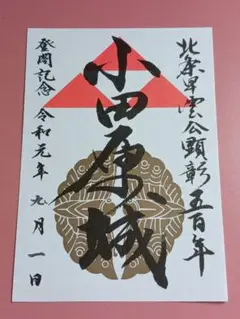 北条早雲公顕彰五百年
小田原城
登閣記念 令和元年 九月 一日